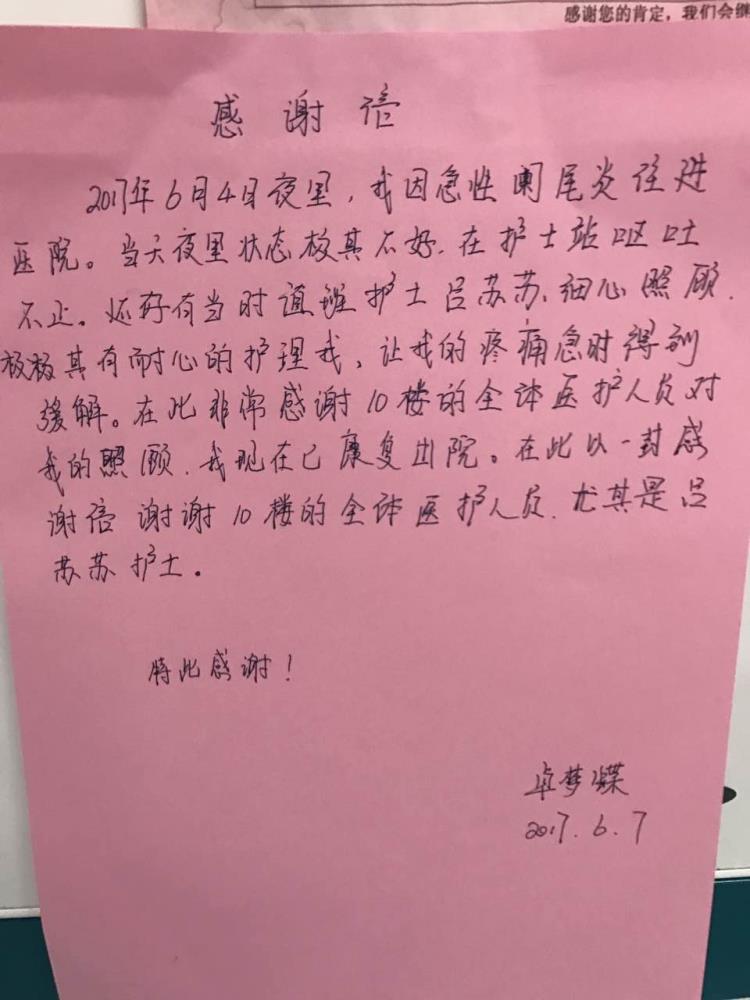 感谢您的肯定，我们会继
感谢信
2017年6月4日夜里，我因急性阑尾炎住进
医院。当天夜里状态极其不好.在护士站呕吐
不止。还好有当时值班护士吕苏苏.细心照顾.
极极其有耐心的护理我、让我的疼痛急时得到
缓解。在此非常感谢10楼的全体医护人员对
我的照顾.我现在已康复出院。在此以一封感
谢信谢谢10楼的全体医护人员.尤其是吕
苏苏护士。
特此感谢！
卓梦蝶
2017.6.7